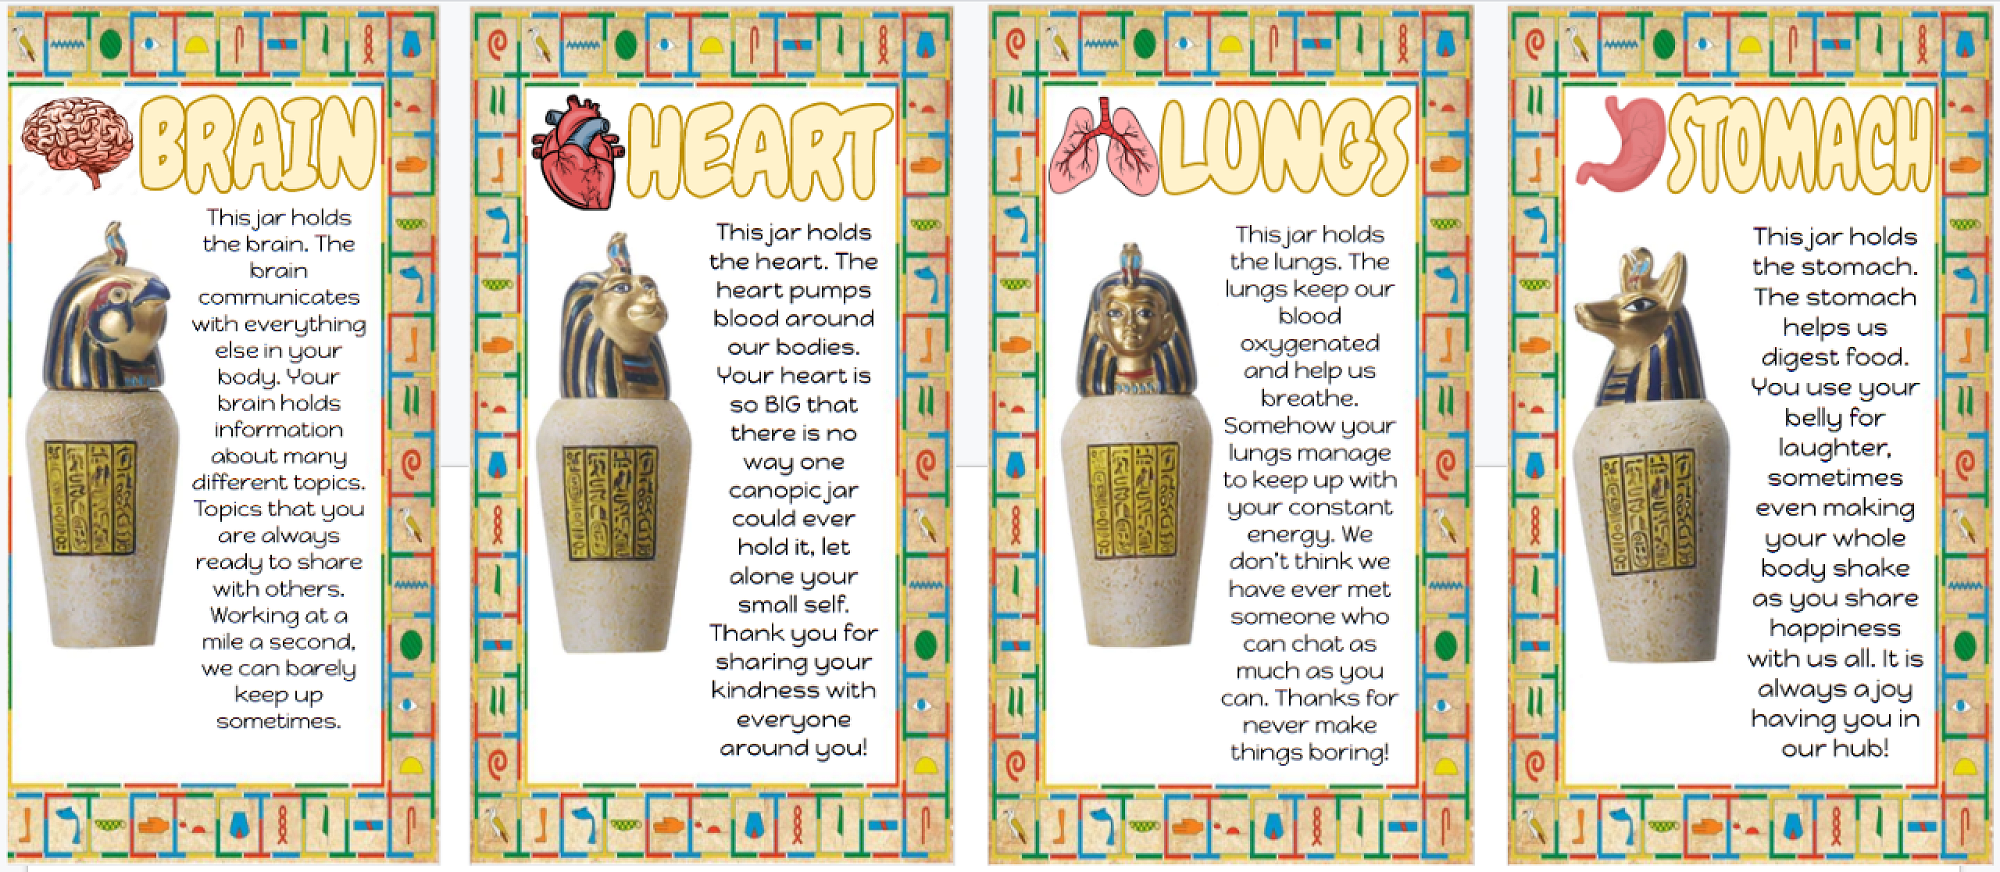 BRAIN
This jar holds
the brain. The
brain
communicates
with everything
else in your
body. Your
brain holds
information
about many
different topics.
Topics that you
are always
ready to share
with others.
Working at a
mile a second,
we can barely
keep up
sometimes.
HEART
This jar holds
the heart. The
heart pumps
blood around
our bodies.
Your heart is
so BIG that
there is no
way one
canopic jar
could ever
hold it, let
alone your
small self.
Thank you for
sharing your
kindness with
everyone
around you!
LUNGS
This jar holds
the lungs. The
lungs keep our
blood
oxygenated
and help us
breathe.
Somehow your
lungs manage
to keep up with
your constant
energy. We
don't think we
have ever met
someone who
can chat as
much as you
can. Thanks for
never make
things boring!
STOMACH
This jar holds
the stomach.
The stomach
helps us
digest food.
You use your
belly for
laughter,
sometimes
even making
your whole
body shake
as you share
happiness
with us all. It is
always a joy
having you in
our hub!